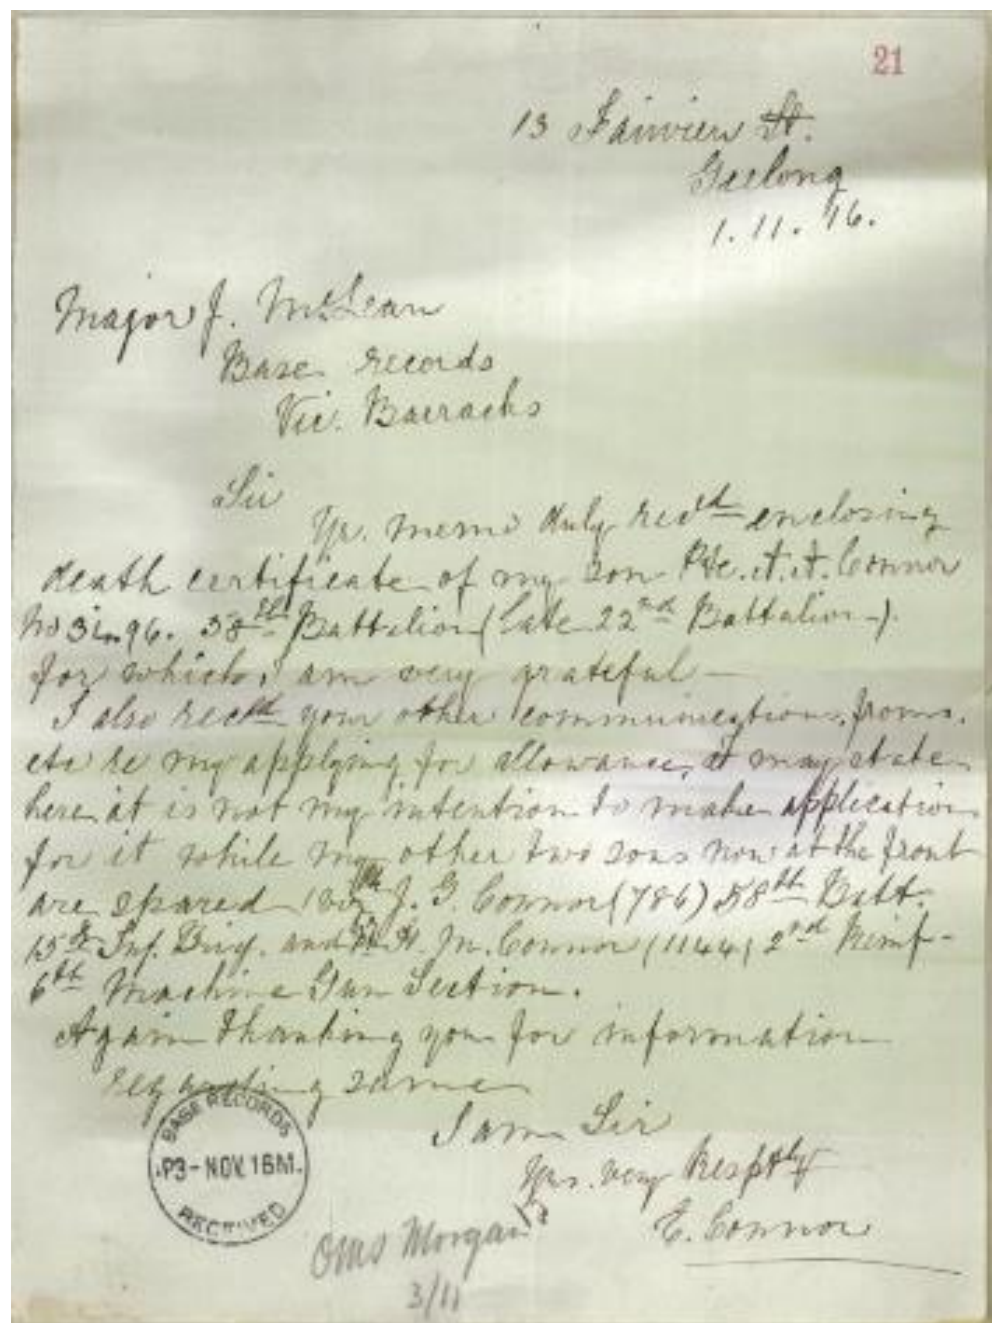 21
13 Fairview St.
Geelong
1.11.'16.
Major J. McLean
Base records
Vic. Barracks
Sir
Yr. memo duly recd enclosing
death certificate of my son Pte. A. A. Connor
No 3496. 58th Battalion (late 22nd Battalion).
for which i am very grateful —
I also recd your other communications, forms.
etc re my applying for allowance, I may state
here it is not my intention to make application
for it while my other two sons now at the front
are spared J. G. Connor (786) 58th Batt.
15th Inf. Brig. and H. M. Connor (1144) 2nd Reinf-
6th Machine Gun Section.
Again thanking you for information
regarding same
I am Sir
Yrs. very Resptly
E. Connor
BASE RECORDS
P3-NOV.16M.
RECEIVED
Morgan
3/11